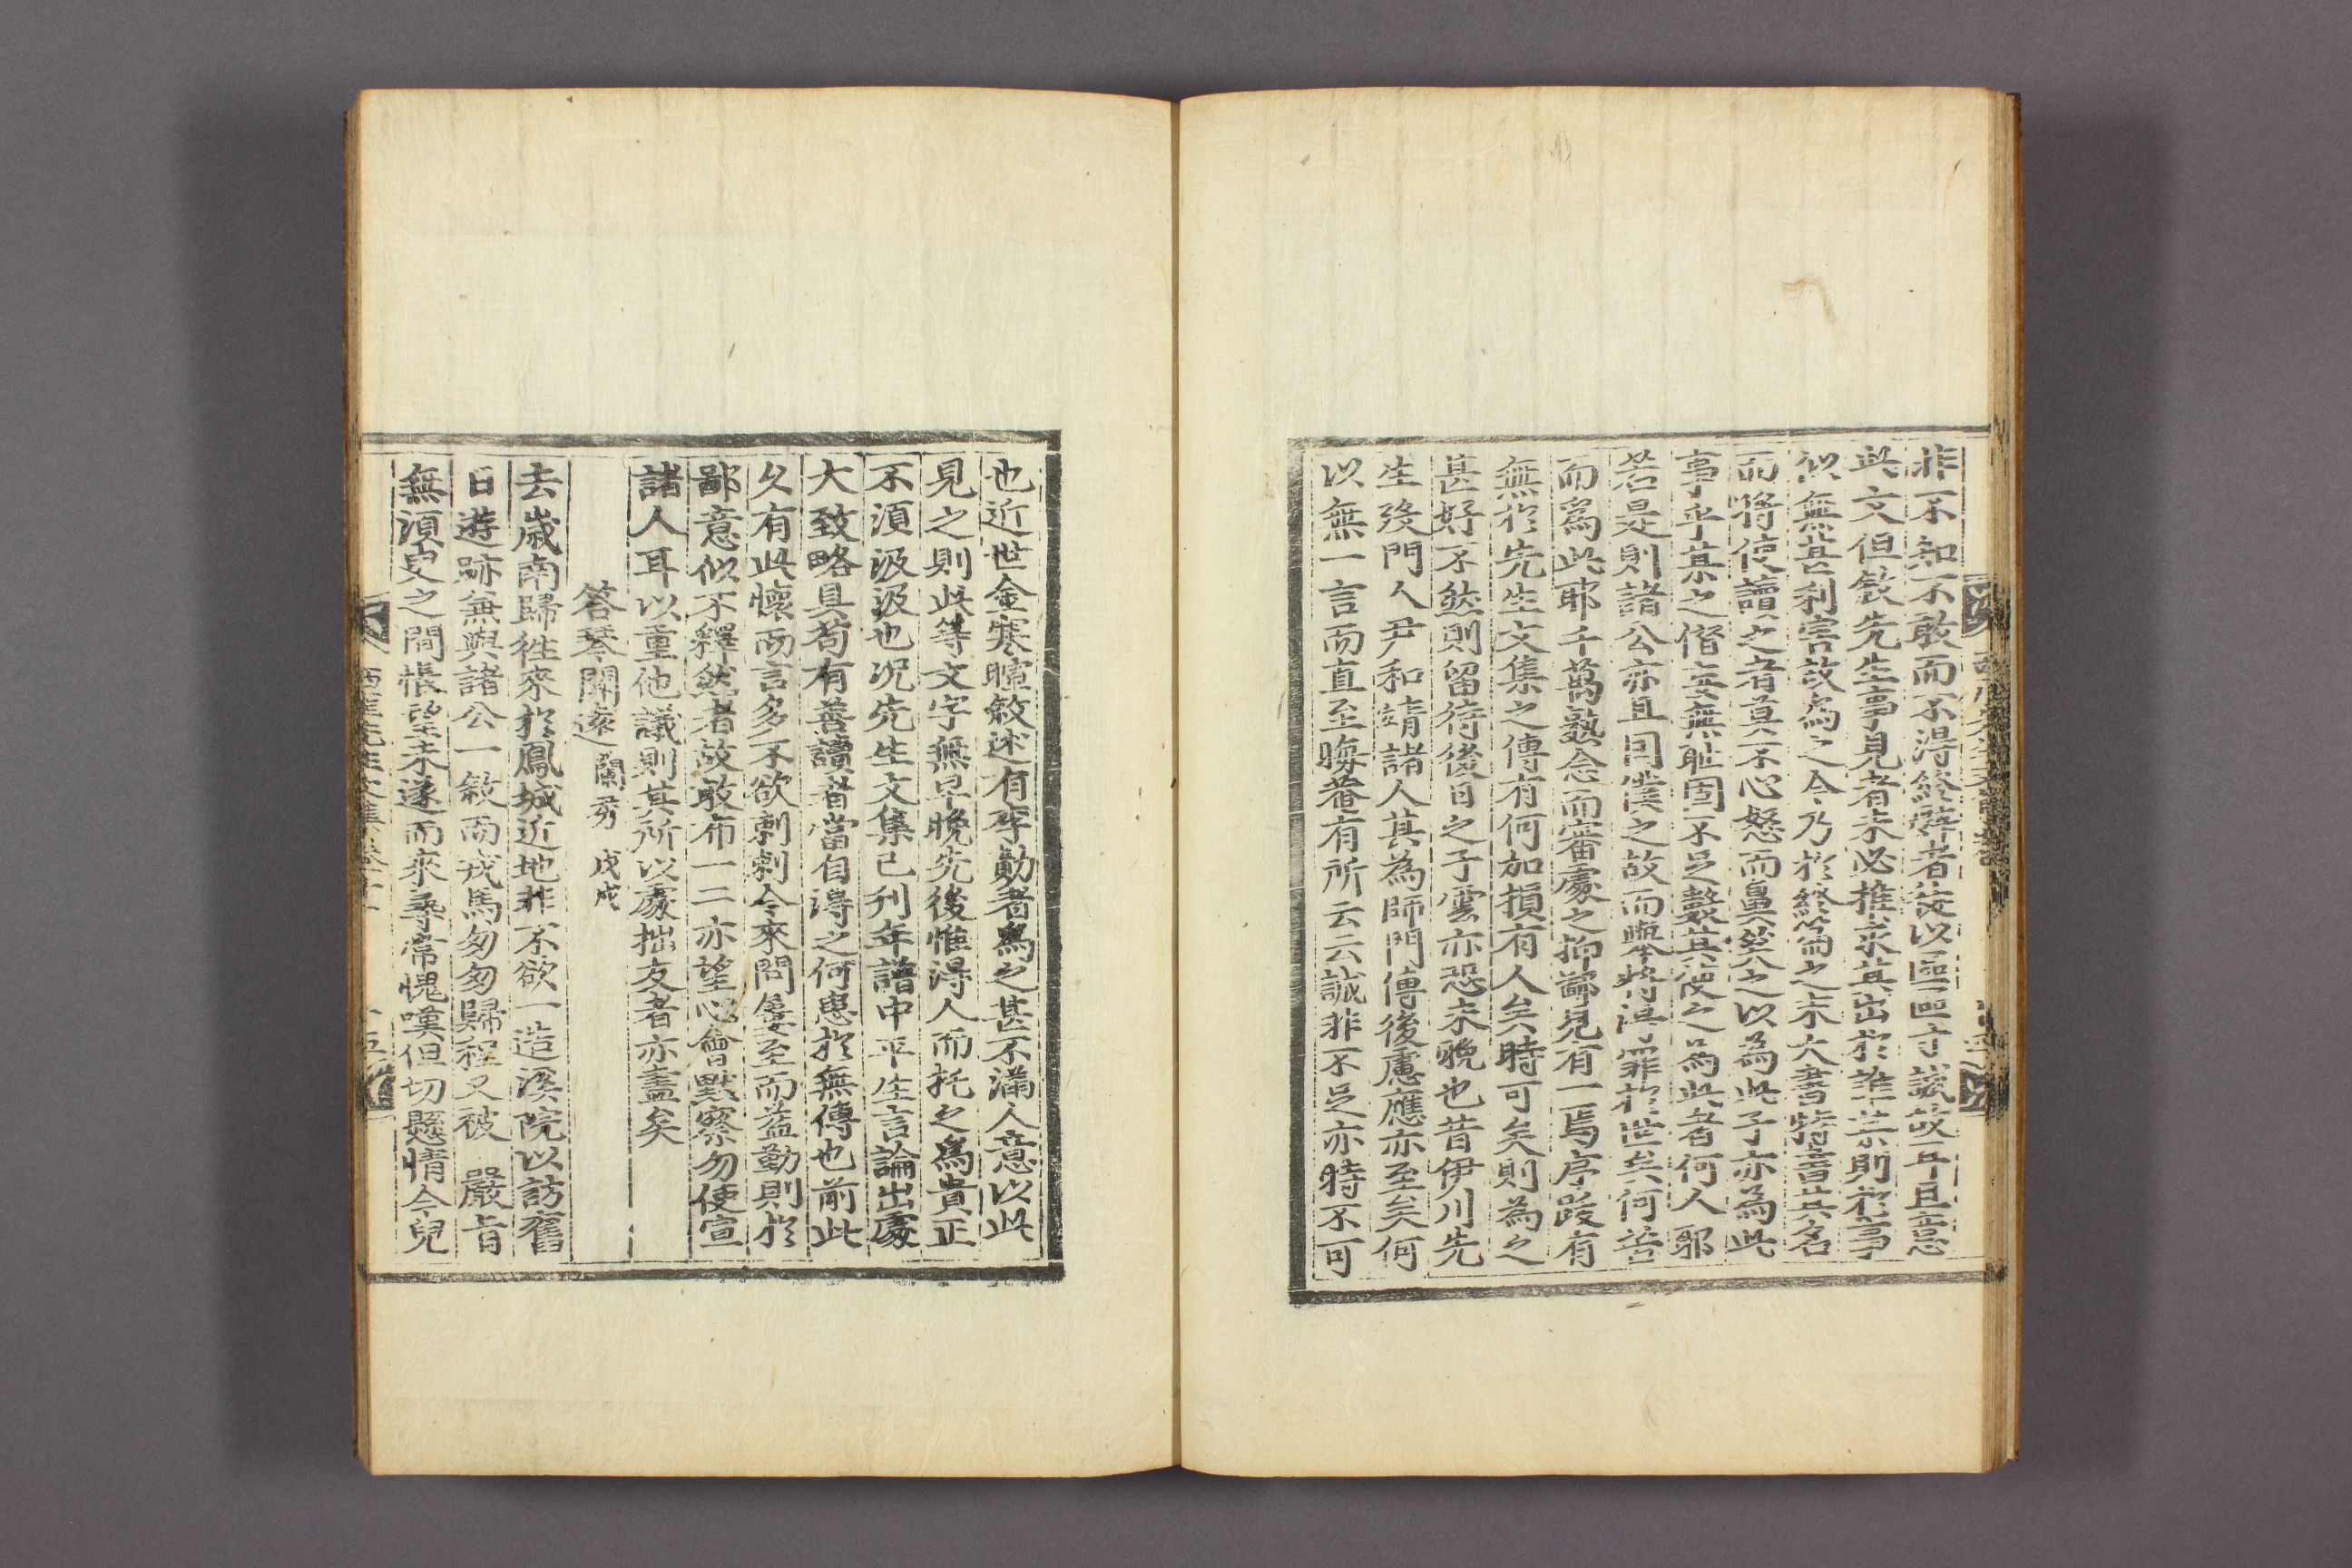 非不知不敢而不得終辭者徒以區區寸誠故耳且意
此文但敍先生事見者未必推求其出於誰某則於事
似無甚利害故爲之今乃於終篇之末大書特書其名
而將使讀之者莫不心怒而鼻笑之以爲此子亦爲此
事乎某之僭妄無耻固不足數其使之爲此者何人耶
若是則諸公亦且同僕之故而與將得罪於世矣何苦
而爲此耶千萬熟念而審處之抑鄙見有一焉序跋有
無於先生文集之傳有何加損有人矣時可矣則爲之
甚好不然則留待後日之子雲亦恐未晩也昔伊川先
生歿門人尹和靖諸人其爲師門傳後慮應亦至矣何
以無一言而直至晦菴有所云云誠非不足亦時不可
也近世金寒暄敍述有李勣者爲之甚不滿人意以此
見之則此等文字無早晩先後惟得人而托之爲貴正
不須汲汲也况先生文集已刊年譜中平生言論出處
大致略具苟有善讀者當自得之何患於無傳也前此
久有此懷而言多不欲剌剌今來問屢至而益勤則於
鄙意似不釋然者故敢布一二亦望心會默察勿使宣
諸人耳以重他議則其所以處拙友者亦盡矣
答琴聞遠 蘭秀 戊戌
去歲南歸徃來於鳳城近地非不欲一造溪院以訪舊
日遊跡無與諸公一敍而戎馬匆匆歸程又被 嚴旨
無須臾之間悵望未遂而來尋常愧嘆但切懸情今兒
西厓先生文集卷之十一 十五